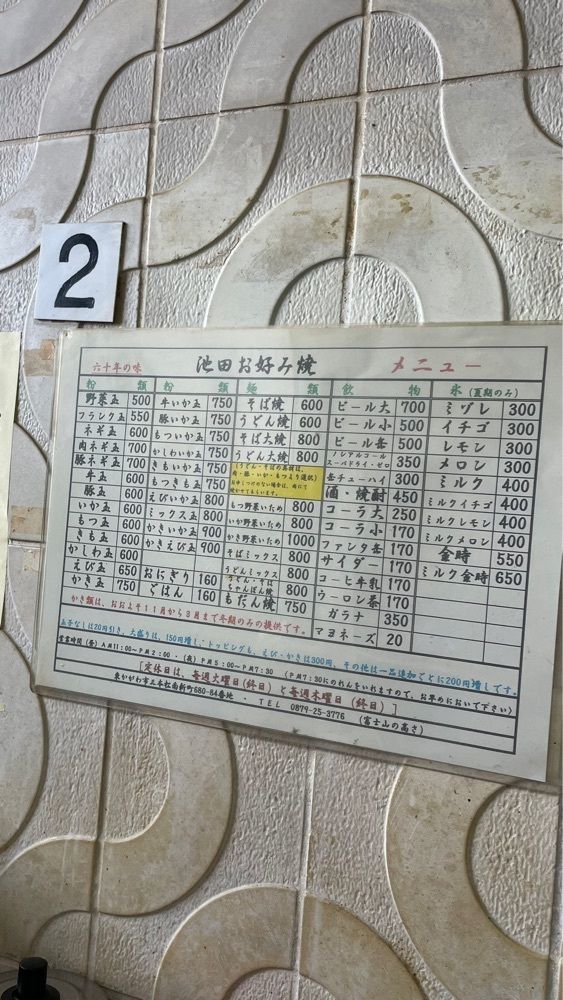 2
六十年の味 池田お好み焼 メニュー
粉 類 粉 類 麺 類 飲 物 氷 (夏期のみ)
野菜玉 500 牛いか玉 750 そば焼 600 ビール大 700 ミゾレ 300
フランク玉 550 豚いか玉 750 うどん焼 600 ビール小 500 イチゴ 300
ネギ玉 600 もついか玉 750 そば大焼 800 ビール缶 500 レモン 300
肉ネギ玉 700 かしわいか玉 750 うどん大焼 800 ノンアルコール スーパードライ・ゼロ 350 メロン 300
豚ネギ玉 700 きもいか玉 750 (うどん・そばの具材は、肉・豚・いか・もつより選択) 缶チューハイ 300 ミルク 400
牛玉 600 もつきも玉 750 酒・焼酎 450 ミルクイチゴ 400
豚玉 600 えびいか玉 800 もつ野菜いため 800 コーラ大 250 ミルクレモン 400
いか玉 600 ミックス玉 800 いか野菜いため 800 コーラ小 170 ミルクメロン 400
もつ玉 600 かきいか玉 900 かき野菜いため 1000 ファンタ缶 170 金時 550
きも玉 600 かきえび玉 900 そばミックス 800 サイダー 170 ミルク金時 650
かしわ玉 600 うどんミックス 800 コーヒ牛乳 170
えび玉 650 おにぎり 160 うどん・そば ちゃんぽん焼 800 ウーロン茶 170
かき玉 750 ごはん 160 もだん焼 750 ガラナ 350
マヨネーズ 20
かき類は、おおよそ11月から3月まで冬期のみの提供です。
玉子なしは20円引き、大盛りは、150円増し・トッピングも、えび・かきは300円、その他は一品追加ごとに200円増しです。
営業時間(昼)AM11:00~PM2:00・(夜)PM5:00~PM7:30 (PM7:30にのれんをいれますので、お早めにおいで下さい)
[定休日は、毎週火曜日(終日)と毎週木曜日(終日)]
東かがわ市三本松南新町680-84番地 ・ TEL 0879-25-3776 (富士山の高さ)